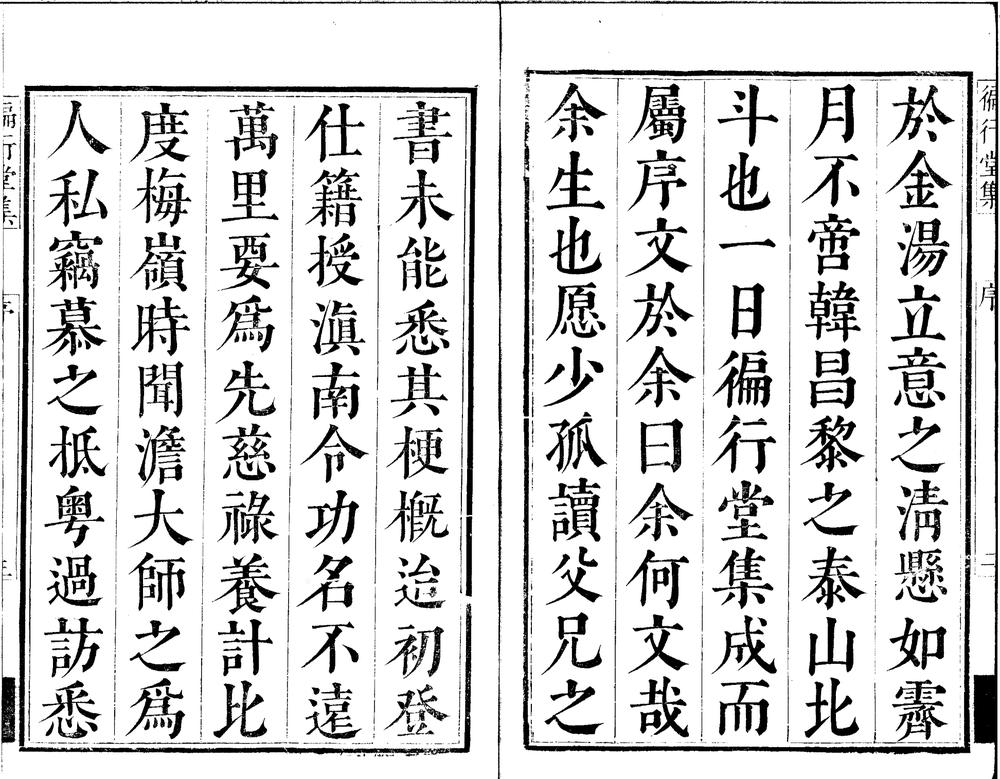 徧行堂集 序 二
於金湯立意之淸懸如霽
月不啻韓昌黎之泰山北
斗也一日徧行堂集成而
屬序文於余曰余何文哉
余生也愿少孤讀父兄之
書未能悉其梗概迨初登
仕籍授滇南令功名不遠
萬里要爲先慈祿養計比
度梅嶺時聞澹大師之爲
人私竊慕之抵粤過訪悉
徧行堂集 序